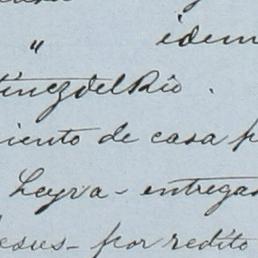 " idem
tinez del Rio .
iento de casa p
Leyva - entregas
Jesus - por redito